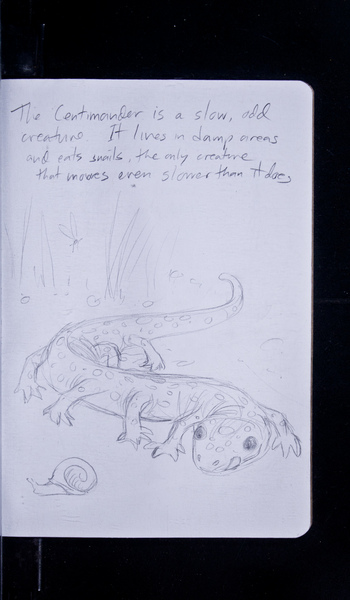 The Centimander is a slow, odd
creature. It lives in damp areas
and eats snails, the only creature
that moves even slower than it does